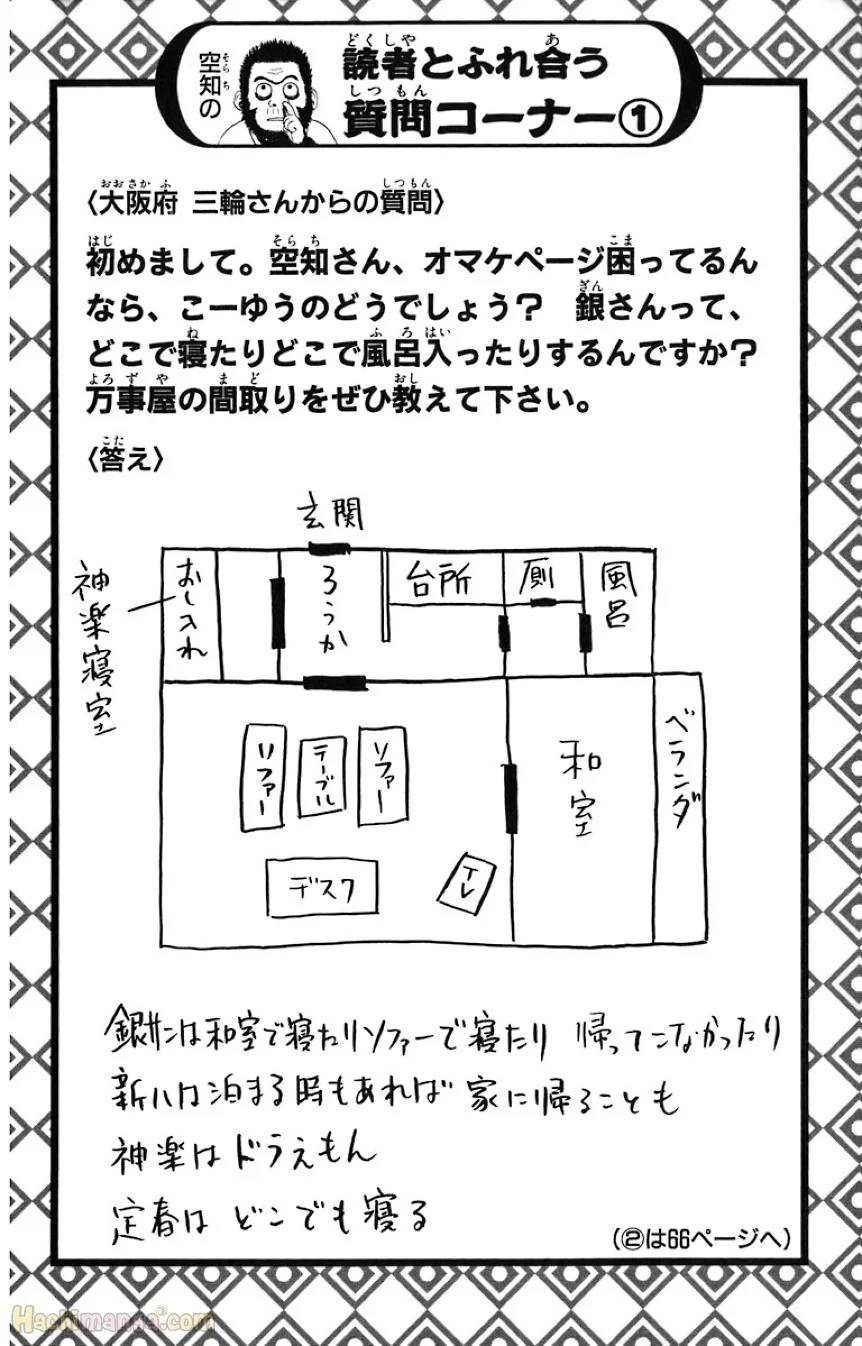 空知の
読者とふれ合う
質問コーナー①
〈大阪府 三輪さんからの質問〉
初めまして。空知さん、オマケページ困ってるん
なら、こーゆうのどうでしょう? 銀さんって、
どこで寝たりどこで風呂入ったりするんですか?
万事屋の間取りをぜひ教えて下さい。
〈答え〉
玄関
神楽寝室
おし入れ
ろうか
台所
厠
風呂
ソファー
テーブル
ソファー
デスク
TV
和室
ベランダ
銀サンは和室で寝たりソファーで寝たり 帰ってこなかったり
新八は泊まる時もあれば 家に帰ることも
神楽はドラえもん
定春は どこでも寝る
(②は66ページへ)
Hachimanga.com